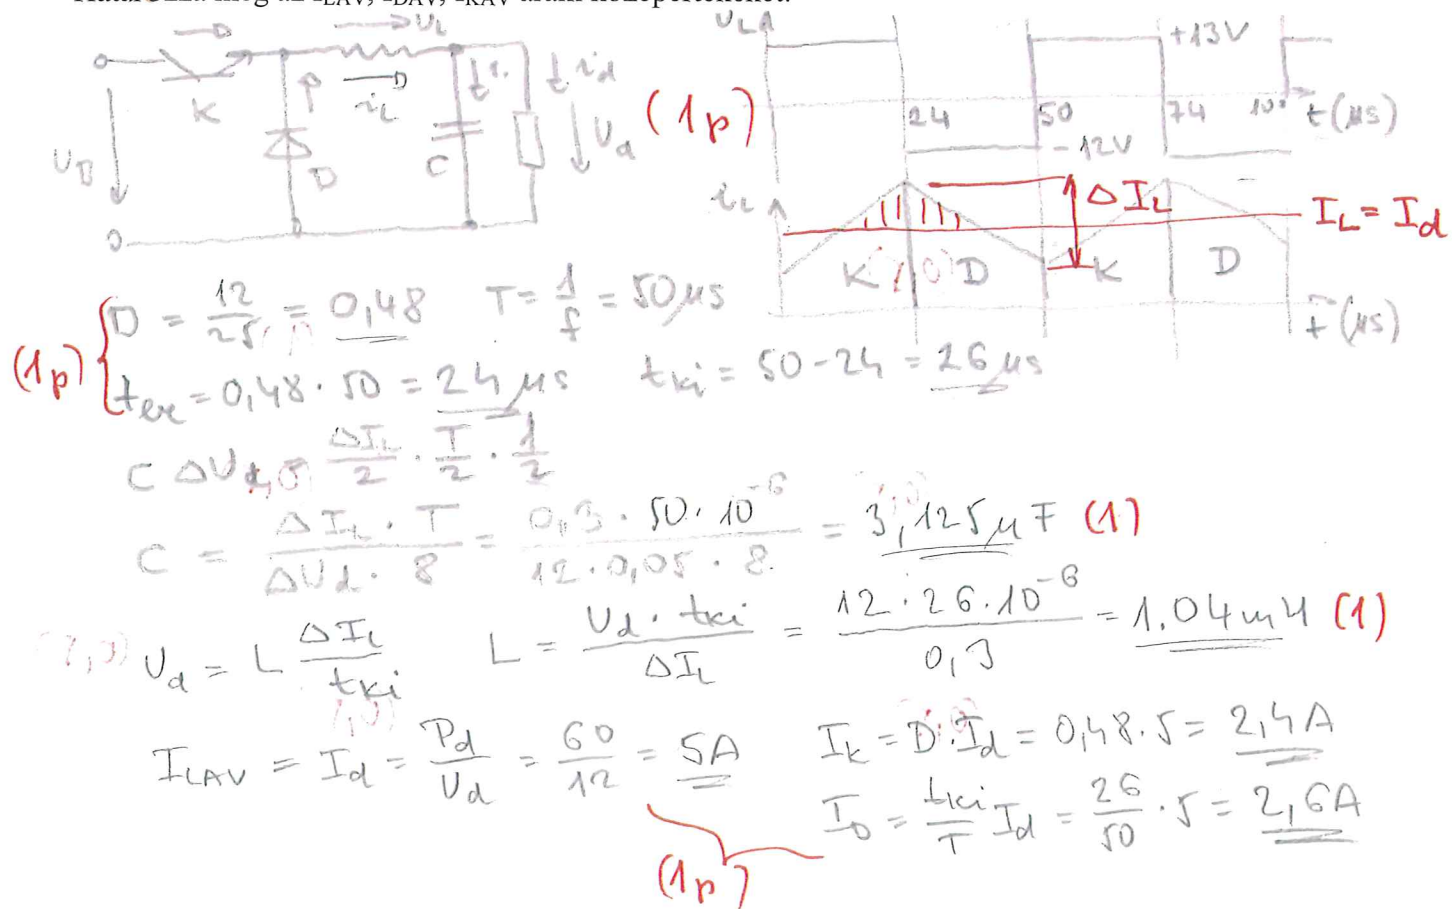 meg az I_LAV, I_DAV, I_KAV áram középértékét.
U_L
K
i_L
i_d
U_B
D
C
U_d
(1p)
U_L
+13V
24 50 74 t(μs)
-12V
i_L
ΔI_L
I_L = I_d
K D K D
t(μs)
(1p)
D = 12/25 = 0,48 T = 1/f = 50 μs
t_be = 0,48 · 50 = 24 μs t_ki = 50 - 24 = 26 μs
C ΔU_d = ΔI_L/2 · T/2 · 1/2
C = ΔI_L · T / ΔU_d · 8 = 0,3 · 50 · 10^-6 / 12 · 0,05 · 8 = 3,125 μF (1)
U_d = L ΔI_L/t_ki L = U_d · t_ki / ΔI_L = 12 · 26 · 10^-6 / 0,3 = 1.04 mH (1)
I_LAV = I_d = P_d/U_d = 60/12 = 5A I_k = D · I_d = 0,48 · 5 = 2,4A
I_D = t_ki/T I_d = 26/50 · 5 = 2,6A
(1p)